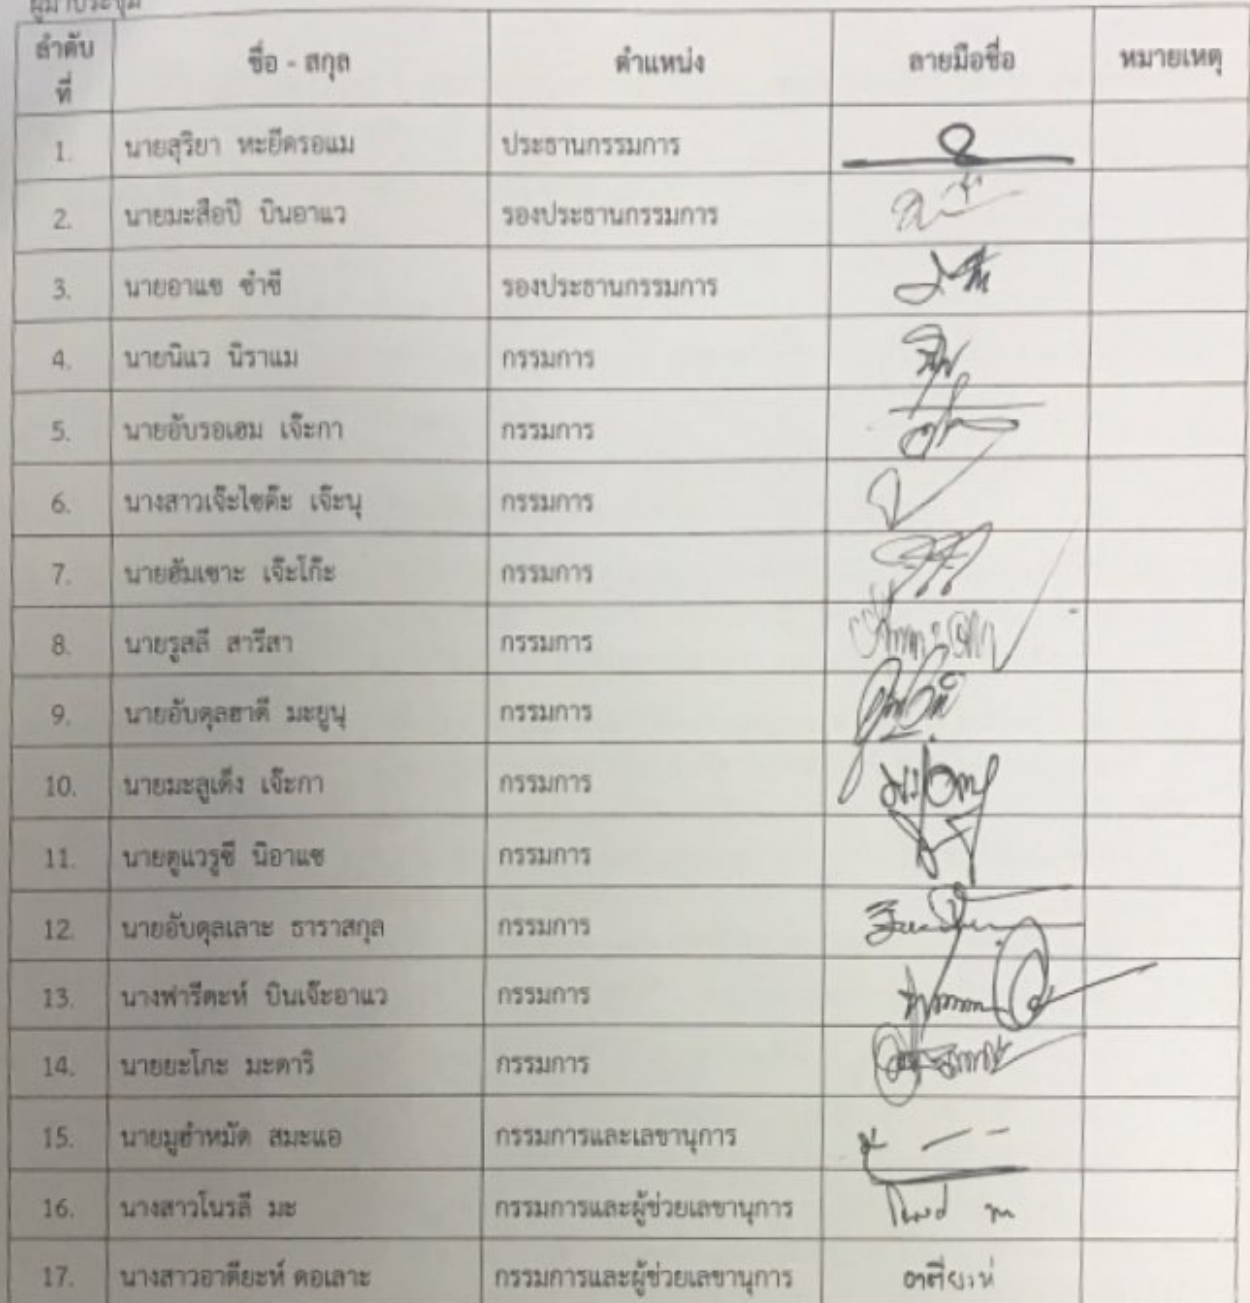 ผู้มาประชุม
ลำดับที่ ชื่อ - สกุล ตำแหน่ง ลายมือชื่อ หมายเหตุ
1. นายสุริยา หะยีดรอแม ประธานกรรมการ
2. นายมะสือปี บินอาแว รองประธานกรรมการ
3. นายอาแซ ซำซี รองประธานกรรมการ
4. นายนิแว นิราแม กรรมการ
5. นายอับรอเฮม เจ๊ะกา กรรมการ
6. นางสาวเจ๊ะไซด๊ะ เจ๊ะนุ กรรมการ
7. นายฮัมเซาะ เจ๊ะโก๊ะ กรรมการ
8. นายรูสลี สารีสา กรรมการ
9. นายอับดุลฮาดี มะยูนุ กรรมการ
10. นายมะลูเด็ง เจ๊ะกา กรรมการ
11. นายตูแวรูซี นิอาแซ กรรมการ
12. นายอับดุลเลาะ ธาราสกุล กรรมการ
13. นางฟารีดะห์ บินเจ๊ะอาแว กรรมการ
14. นายยะโกะ มะดาริ กรรมการ
15. นายมูฮำหมัด สมะแอ กรรมการและเลขานุการ
16. นางสาวโนรลี มะ กรรมการและผู้ช่วยเลขานุการ
17. นางสาวอาตียะห์ ดอเลาะ กรรมการและผู้ช่วยเลขานุการ อาตียะห์